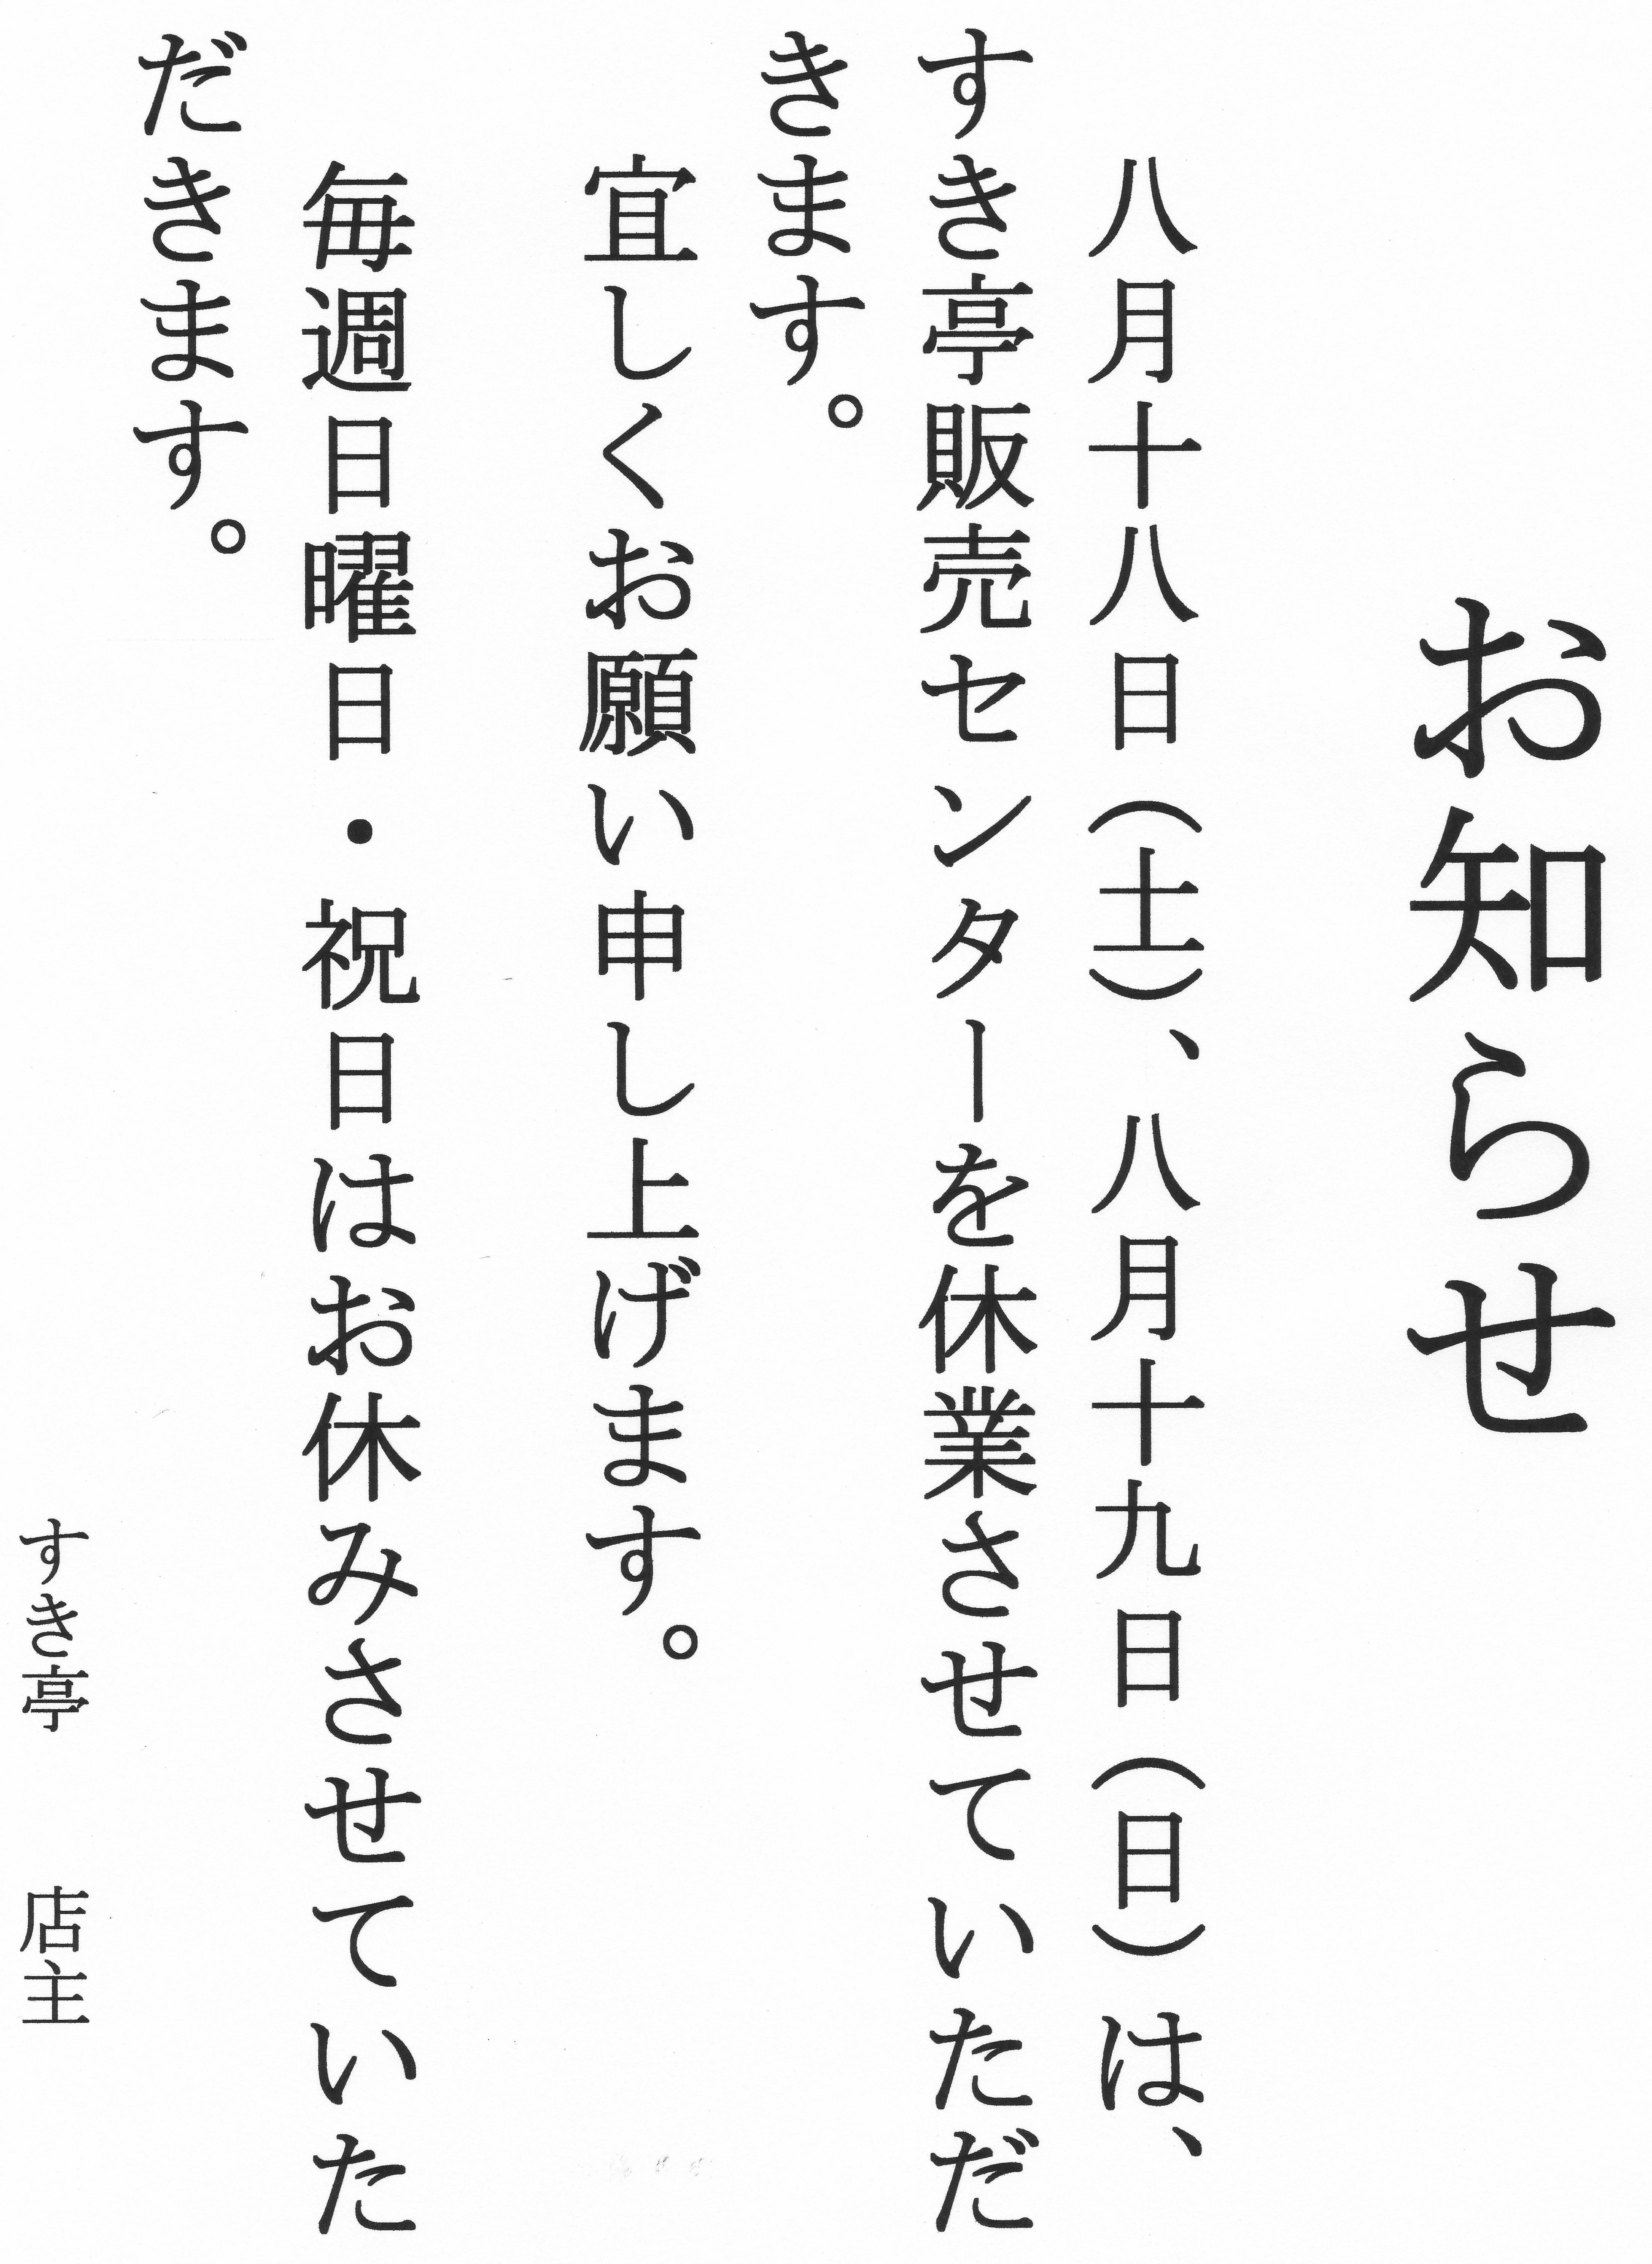 お知らせ
八月十八日（土）、八月十九日（日）は、
すき亭販売センターを休業させていただ
きます。
宜しくお願い申し上げます。
毎週日曜日・祝日はお休みさせていた
だきます。
すき亭　店主